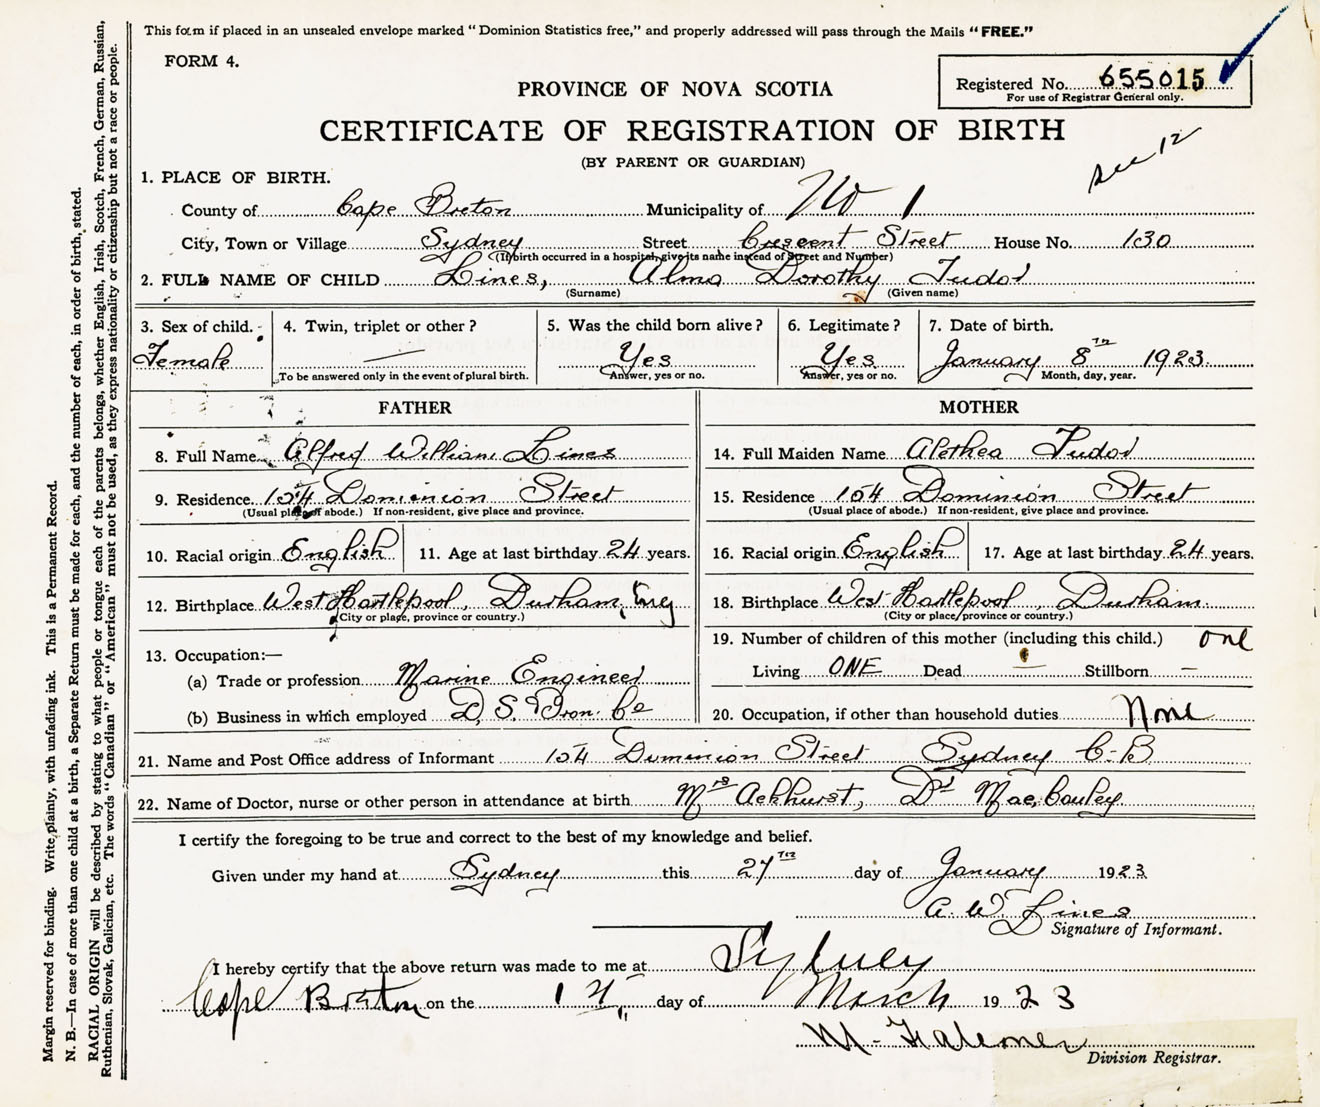 This form if placed in an unsealed envelope marked "Dominion Statistics free," and properly addressed will pass through the Mails "FREE."
FORM 4.
Registered No. 655015
For use of Registrar General only.
PROVINCE OF NOVA SCOTIA
CERTIFICATE OF REGISTRATION OF BIRTH
(BY PARENT OR GUARDIAN)
Dec 12
1. PLACE OF BIRTH.
County of Cape Breton Municipality of No 1
City, Town or Village Sydney Street Crescent Street House No. 130
(If birth occurred in a hospital, give its name instead of Street and Number)
2. FULL NAME OF CHILD Lines, Alma Dorothy Tudor
(Surname) (Given name)
3. Sex of child. 4. Twin, triplet or other? 5. Was the child born alive? 6. Legitimate? 7. Date of birth.
Female — Yes Yes January 8th 1923.
To be answered only in the event of plural birth. Answer, yes or no. Answer, yes or no. Month, day, year.
FATHER
8. Full Name Alfred William Lines
9. Residence 154 Dominion Street
(Usual place of abode.) If non-resident, give place and province.
10. Racial origin English 11. Age at last birthday 24 years.
12. Birthplace West Hartlepool, Durham, Eng
(City or place, province or country.)
13. Occupation:—
(a) Trade or profession Marine Engineer
(b) Business in which employed D. S. Iron. Co
MOTHER
14. Full Maiden Name Alethea Tudor
15. Residence 154 Dominion Street
(Usual place of abode.) If non-resident, give place and province.
16. Racial origin English 17. Age at last birthday 24 years.
18. Birthplace West Hartlepool, Durham.
(City or place, province or country.)
19. Number of children of this mother (including this child.) one
Living ONE Dead — Stillborn —
20. Occupation, if other than household duties None
21. Name and Post Office address of Informant 154 Dominion Street Sydney C-B
22. Name of Doctor, nurse or other person in attendance at birth Mrs Ackhurst, Dr MacCauley
I certify the foregoing to be true and correct to the best of my knowledge and belief.
Given under my hand at Sydney this 27th day of January 1923
A. W. Lines
Signature of Informant.
I hereby certify that the above return was made to me at Sydney
Cape Breton on the day of March 1923
M.
Division Registrar.
Margin reserved for binding. Write plainly, with unfading ink. This is a Permanent Record.
N. B.—In case of more than one child at a birth, a Separate Return must be made for each, and the number of each, in order of birth, stated.
RACIAL ORIGIN will be described by stating to what people or tongue each of the parents belongs, whether English, Irish, Scotch, French, German, Russian,
Ruthenian, Slovak, Galician, etc. The words "Canadian" or "American" must not be used, as they express nationality or citizenship but not a race or people.